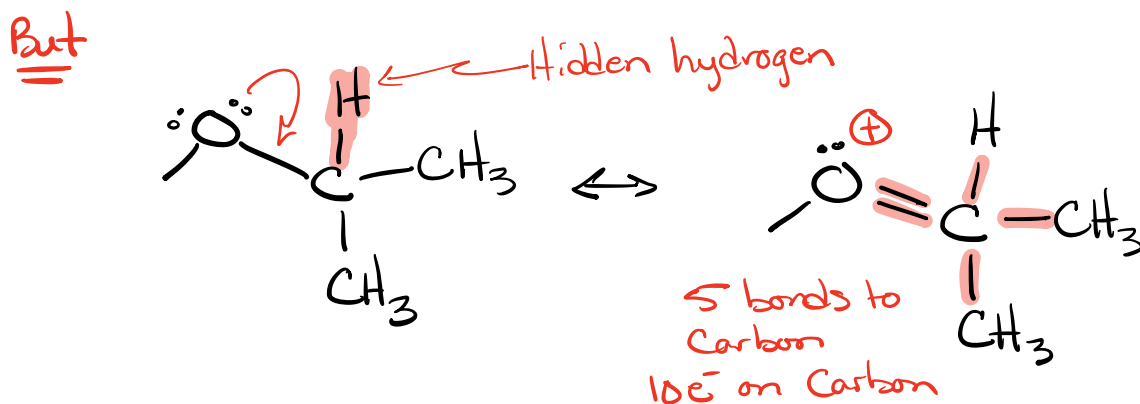 But
Hidden hydrogen
H
O
C
CH3
CH3
O
+
H
C
CH3
CH3
5 bonds to
Carbon
10e- on Carbon